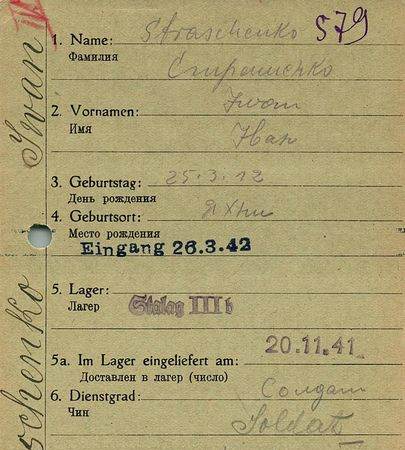 1. Name: Straschenko 579
Фамилия
2. Vornamen: Iwan
Имя Иван
3. Geburtstag: 25.3.12
День рождения
4. Geburtsort:
Место рождения
Eingang 26.3.42
5. Lager:
Лагер Stalag III b
20.11.41
5a. Im Lager eingeliefert am:
Доставлен в лагер (число)
6. Dienstgrad: Солдат
Чин Soldat
Iwan